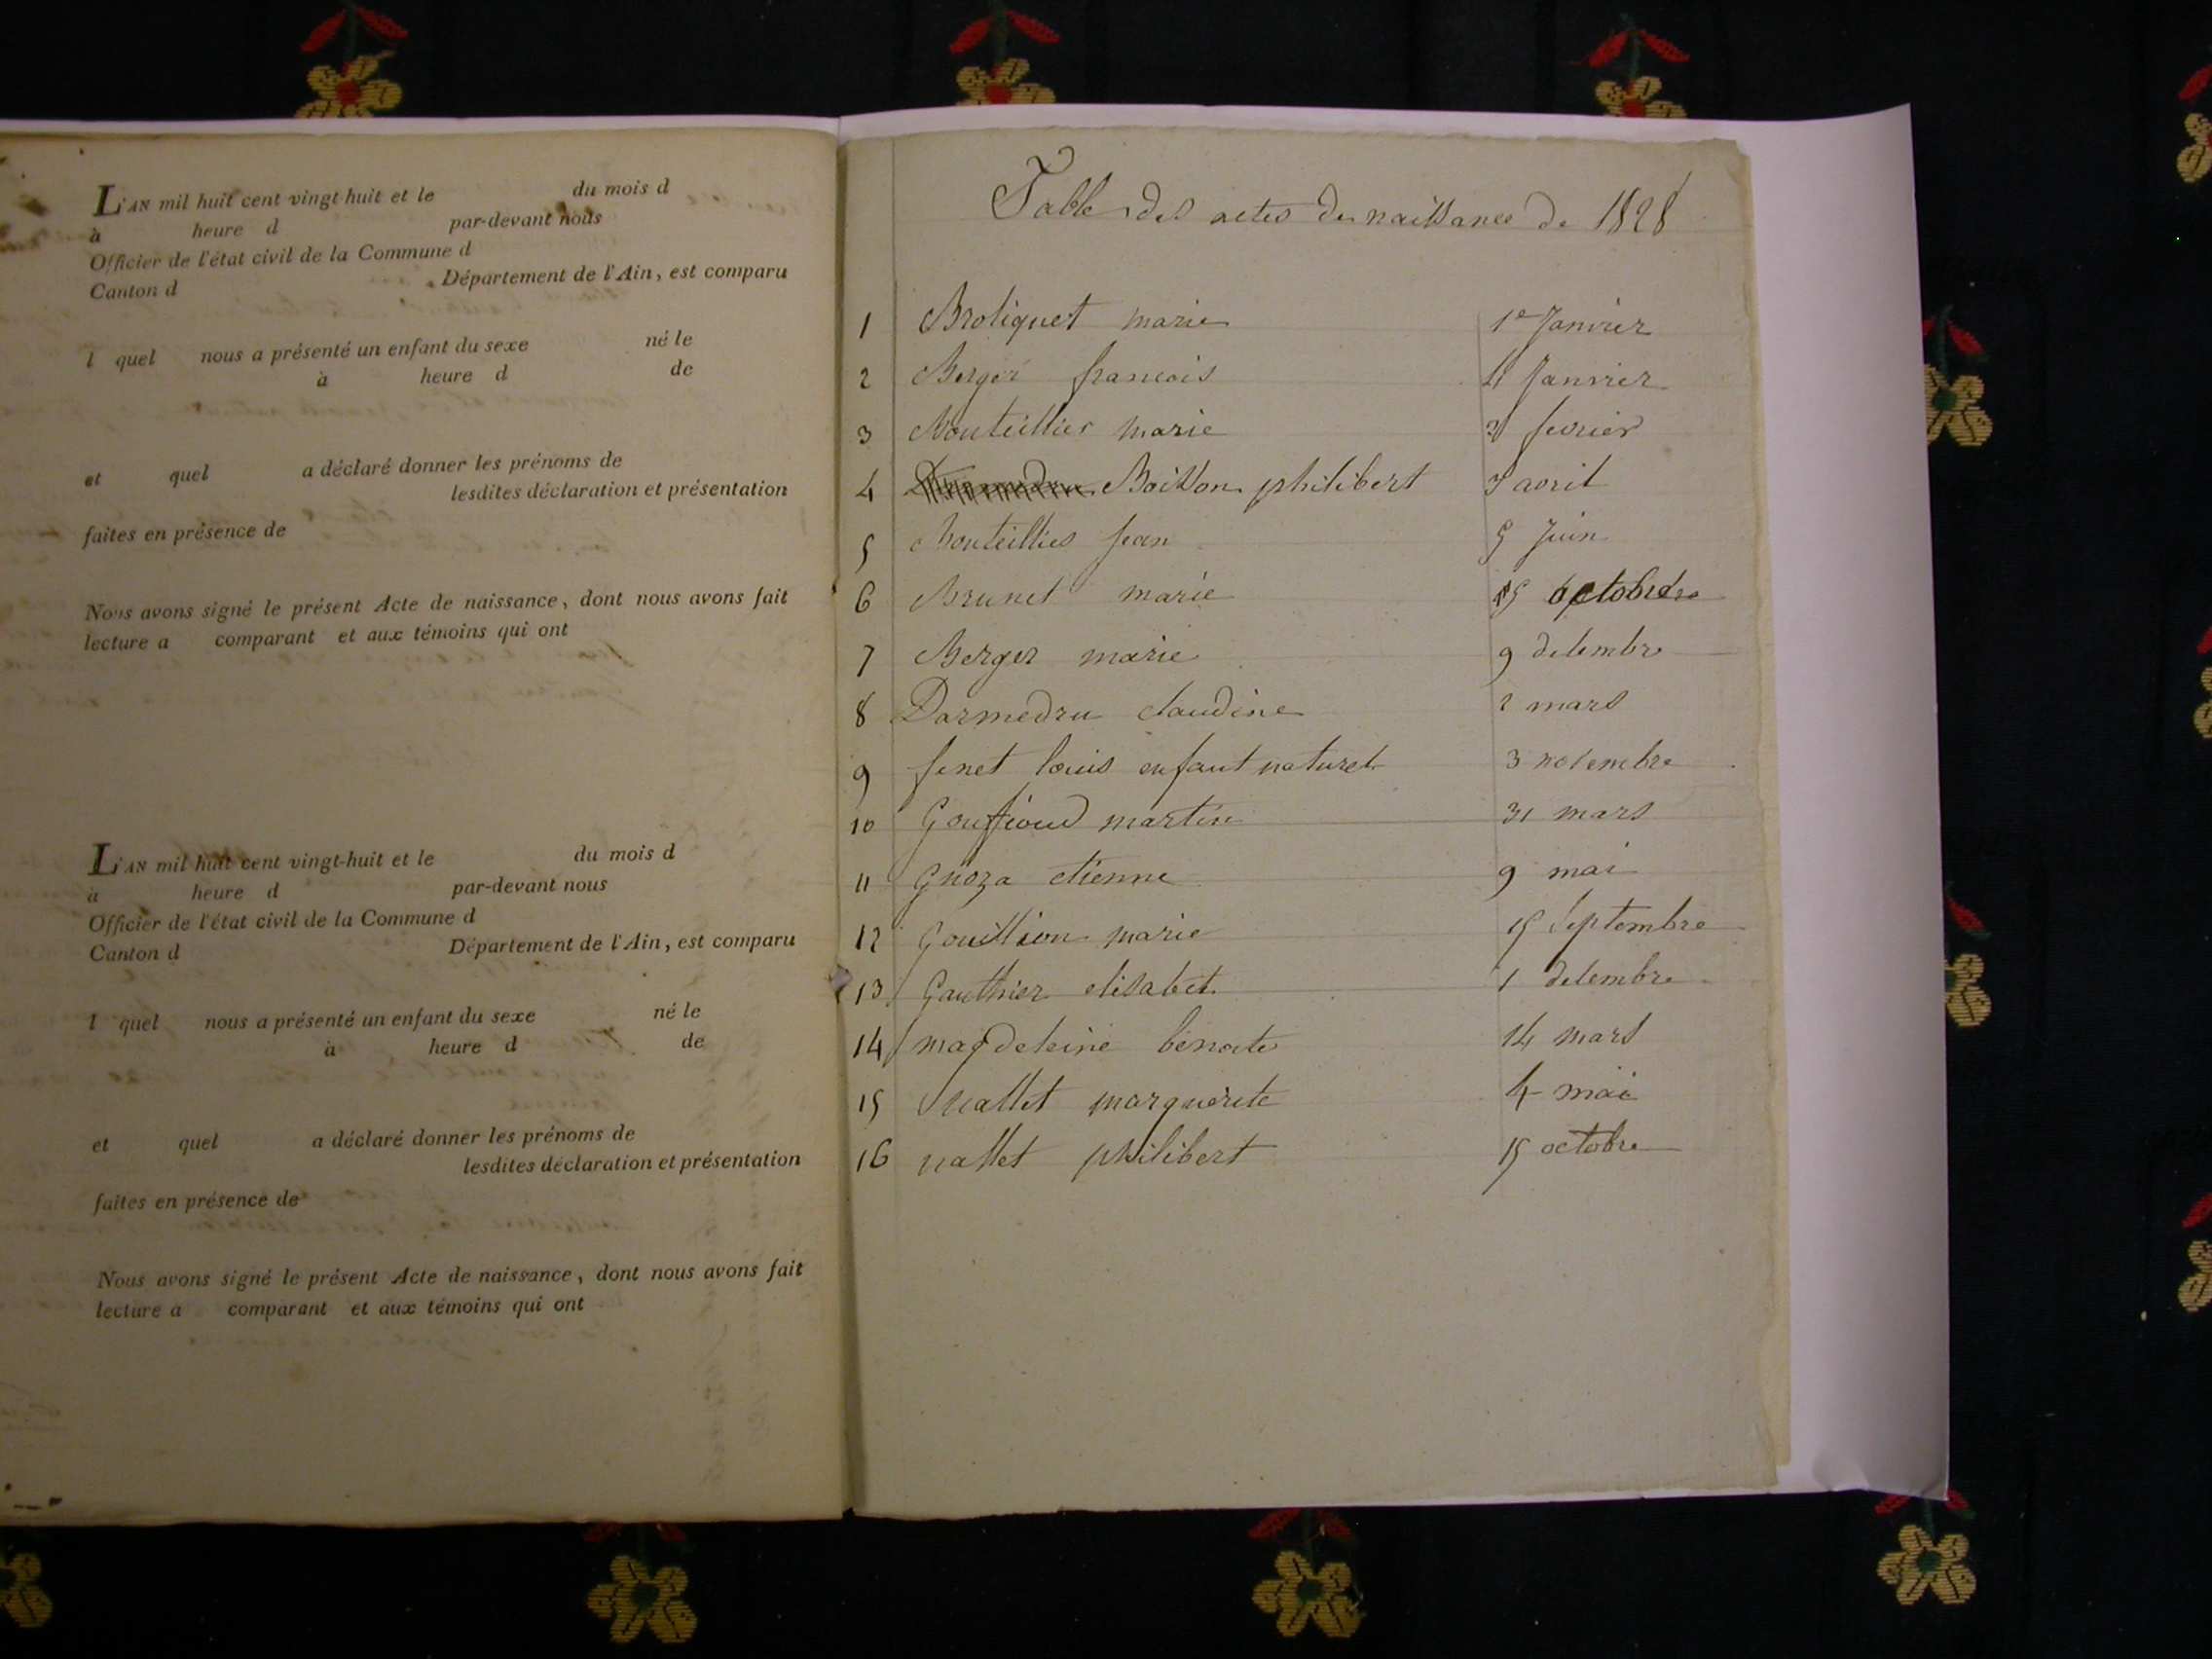 L'AN mil huit cent vingt-huit et le du mois d
à heure d par-devant nous
Officier de l'état civil de la Commune d
Canton d Département de l'Ain, est comparu
l quel nous a présenté un enfant du sexe né le
à heure d de
et quel a déclaré donner les prénoms de
lesdites déclaration et présentation
faites en présence de
Nous avons signé le présent Acte de naissance, dont nous avons fait
lecture a comparant et aux témoins qui ont
L'AN mil huit cent vingt-huit et le du mois d
à heure d par-devant nous
Officier de l'état civil de la Commune d
Canton d Département de l'Ain, est comparu
l quel nous a présenté un enfant du sexe né le
à heure d de
et quel a déclaré donner les prénoms de
lesdites déclaration et présentation
faites en présence de
Nous avons signé le présent Acte de naissance, dont nous avons fait
lecture a comparant et aux témoins qui ont
Table des actes de naissance de 1828
1 Broliquet marie 1e Janvier
2 Berger francois 4 Janvier
3 Bouteillier marie 3 fevrier
4 Boisson philibert 7 avril
5 Bouteillier Jean 5 Juin
6 Brunet marie 15 octobre
7 Berger marie 9 decembre
8 Darmedru claudine 2 mars
9 fenet louis enfant naturel 3 novembre
10 Gouffioud martin 31 mars
11 etienne 9 mai
12 Gouillion marie 15 Septembre
13 Gauthier elisabet 1 decembre
14 magdeleine benoite 14 mars
15 vallet marguerite 4 mai
16 vallet philibert 15 octobre